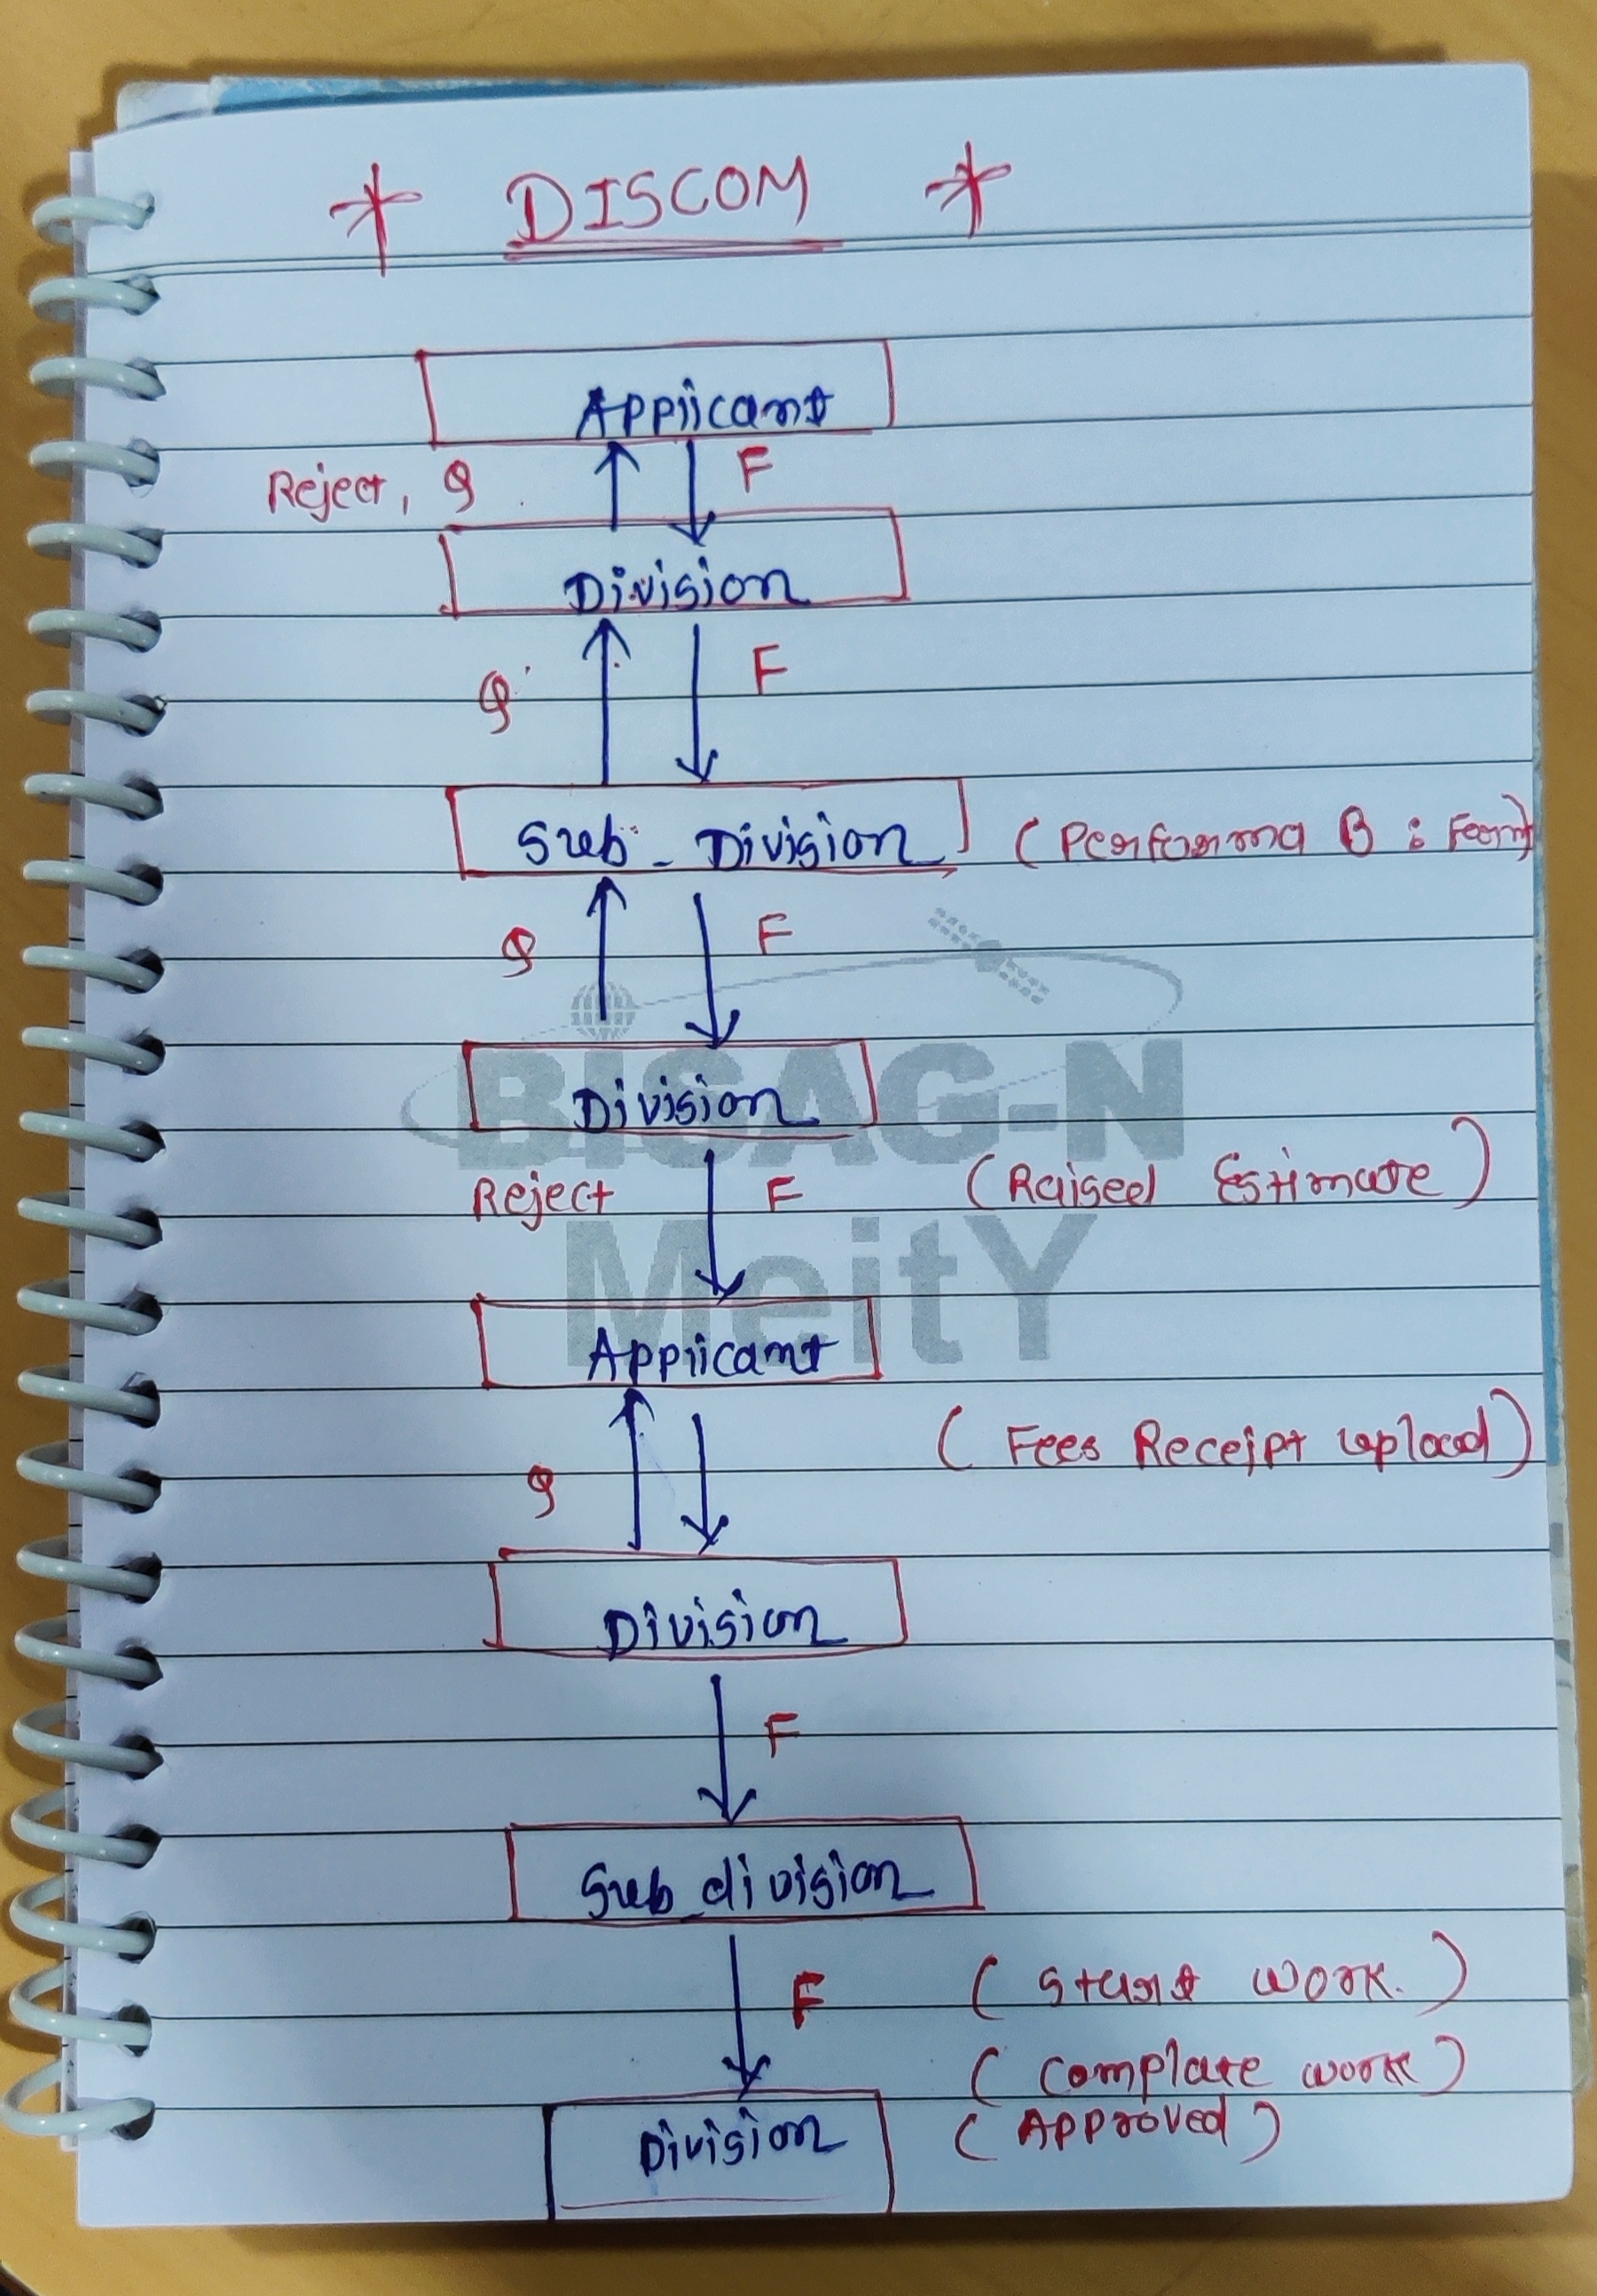 * DISCOM *
Applicant
Reject, Q F
Division
Q F
Sub-Division (Performa B : Form)
Q F
BISAG-N
Division
Reject F (Raised Estimate)
MeitY
Applicant
(Fees Receipt upload)
Q
Division
F
Sub-division
F (Start work.)
(Complate work)
Division (Approved)